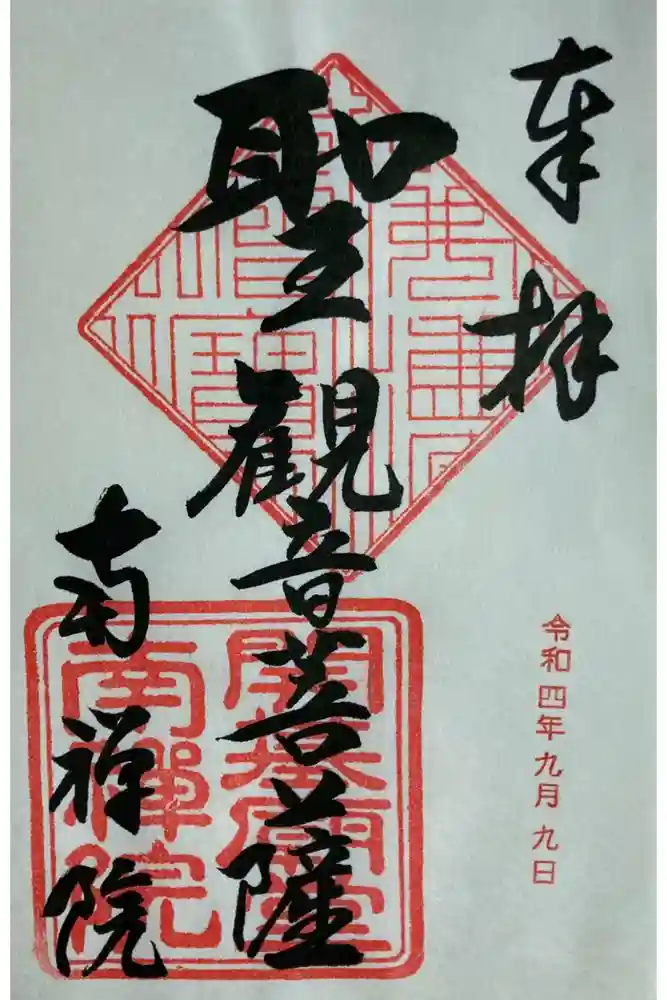 奉拝
令和四年九月九日
聖観音菩薩
南禅院
開基廟堂
南禅院